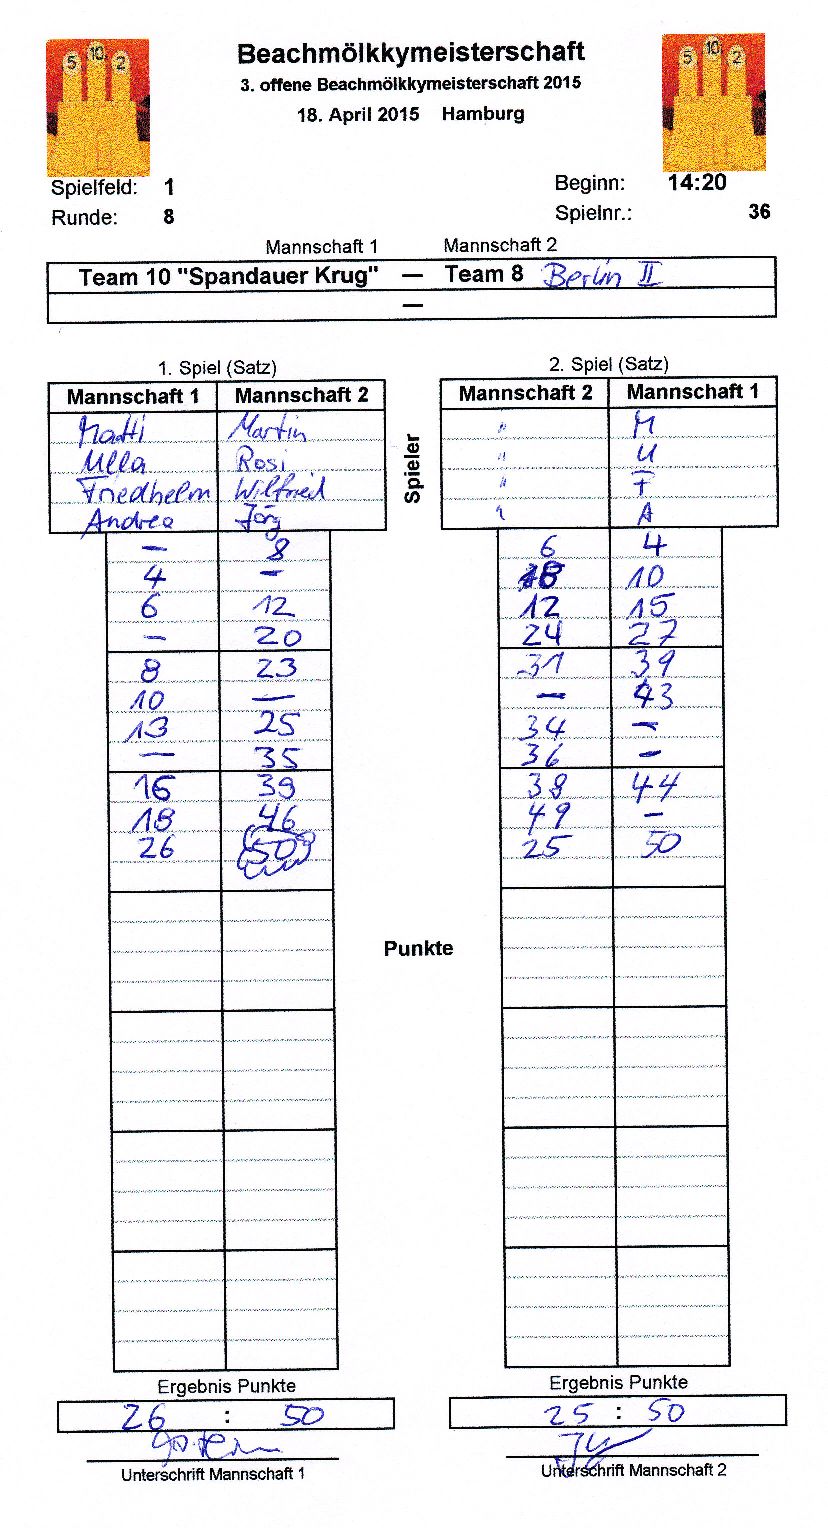 5 10 2
5 10 2
Beachmölkkymeisterschaft
3. offene Beachmölkkymeisterschaft 2015
18. April 2015 Hamburg
Spielfeld: 1 Beginn: 14:20
Runde: 8 Spielnr.: 36
Mannschaft 1 Mannschaft 2
Team 10 "Spandauer Krug" — Team 8 Berlin II
—
1. Spiel (Satz) 2. Spiel (Satz)
Mannschaft 1 Mannschaft 2 Mannschaft 2 Mannschaft 1
Spieler
Matti Martin " M
Ulla Rosi " U
Friedhelm Wilfried " F
Andrea Jörg " A
— 8 6 4
4 — 10
6 12 12 15
— 20 24 27
8 23 31 39
10 — — 43
13 25 34 —
— 35 36 —
16 39 38 44
18 46 49 —
26 50 25 50
Punkte
Ergebnis Punkte Ergebnis Punkte
26 : 50 25 : 50
Unterschrift Mannschaft 1 Unterschrift Mannschaft 2